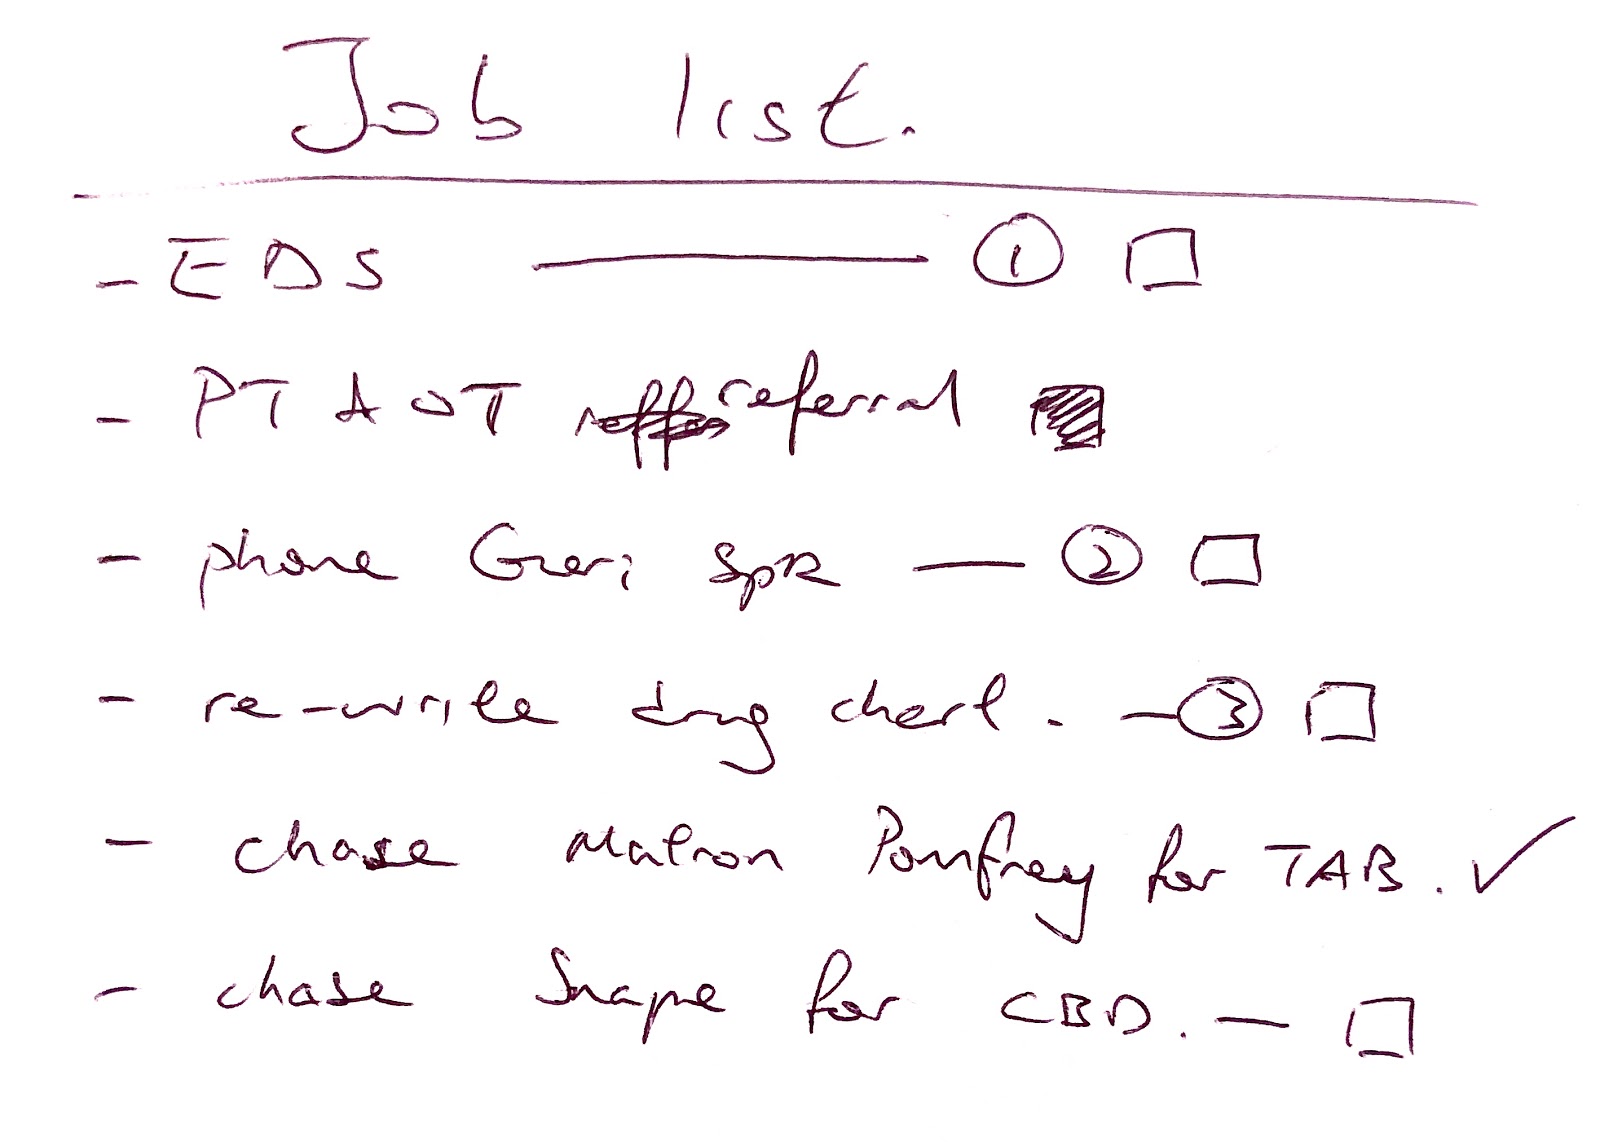 Job list.
- EDS — ① ☐
- PT & OT referral
- phone Geri SpR — ② ☐
- re-write drug chart. — ③ ☐
- chase Matron Pomfrey for TAB. ✓
- chase Snape for CBD. — ☐